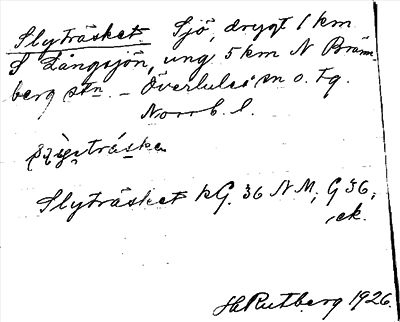 Slyträsket Sjö, drygt 1 km
S Långsjön, ung 5 km N Bräm-
berg stn. – Överluleå sn o. Tg.
Norrb. l.
Slyträsket kG. 36 NM; G 36;
ek.
H Rutberg 1926.